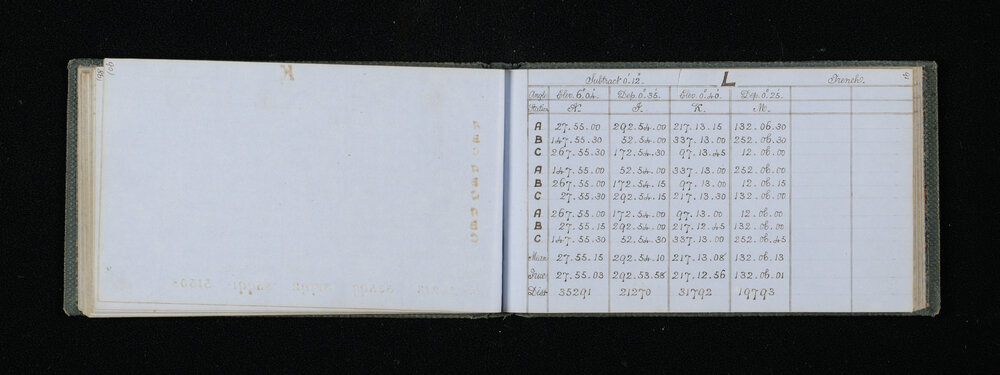 Subtract 0°.12".
L
Trench.
Angle Elev. 6°.04'. Dep. 0°.35'. Elev. 0°.40. Dep. 0°.25.
Station K. M.
A 27.55.00 292.54.00 217.13.15 132.06.30
B 147.55.30 52.54.00 337.13.00 252.06.30
C 267.55.30 172.54.30 97.13.45 12.06.00
A 147.55.00 52.54.00 337.13.00 252.06.00
B 267.55.00 172.54.15 97.13.00 12.06.15
C 27.55.30 292.54.15 217.13.30 132.06.00
A 267.55.00 172.54.00 97.13.00 12.06.00
B 27.55.15 292.54.00 217.12.45 132.06.00
C 147.55.30 52.54.30 337.13.00 252.06.45
Mean 27.55.15 292.54.10 217.13.08 132.06.13
True 27.55.03 292.53.58 217.12.56 132.06.01
Dist 35291 21270 31792 19793